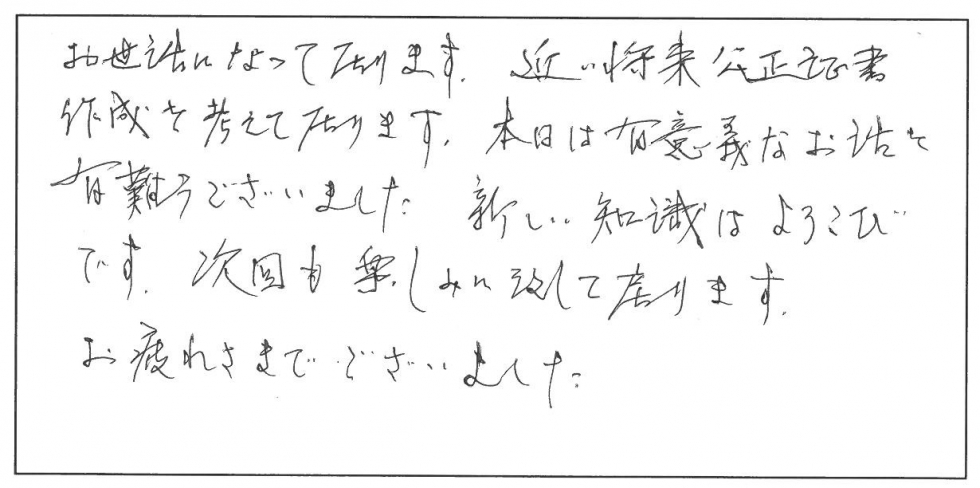 お世話になって居ります。近い将来公正証書
作成を考えて居ります。本日は有意義なお話を
有難うございました。新しい知識はよろこび
です。次回も楽しみに致して居ります。
お疲れさまでございました。